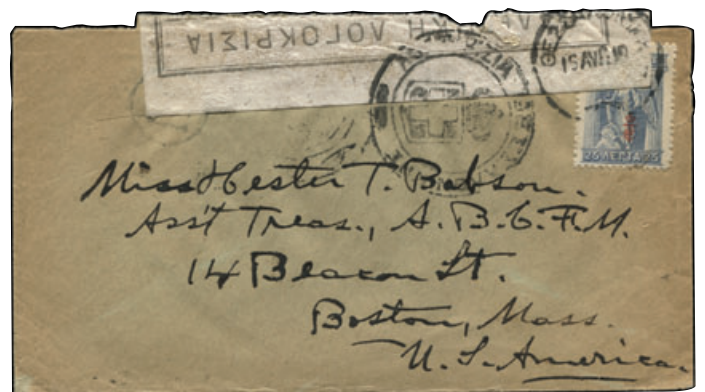 ΛΟΓΟΚΡΙΣΙΑ
25 ΛΕΠΤΑ 25
Miss Hester T. Babson.
Ass't Treas., A. B. C. F. M.
14 Beacon St.
Boston, Mass.
U. S. America.